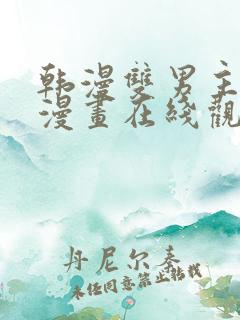 韩漫雙男主
漫畫在綫觀
丹尼尔泰
未经同意禁止转载